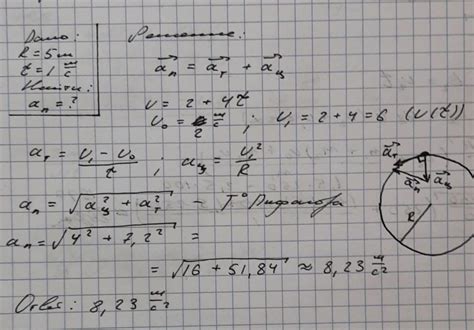 Дано:
R = 5 м
t = 1 м/с
Найти:
aₙ = ?
Решение:
a⃗ₙ = a⃗ₜ + a⃗ц
V = 2 + 4t
V₀ = 2 м/с ; V₁ = 2 + 4 = 6 (V(t))
aₜ = (V₁ - V₀)/t ; aц = V₁²/R
aₙ = √(aц² + aₜ²) - Т° Пифагора
aₙ = √(4² + 7,2²) =
= √(16 + 51,84) ≈ 8,23 м/с²
Ответ: 8,23 м/с²
a⃗ₜ
a⃗ₙ
a⃗ц
R